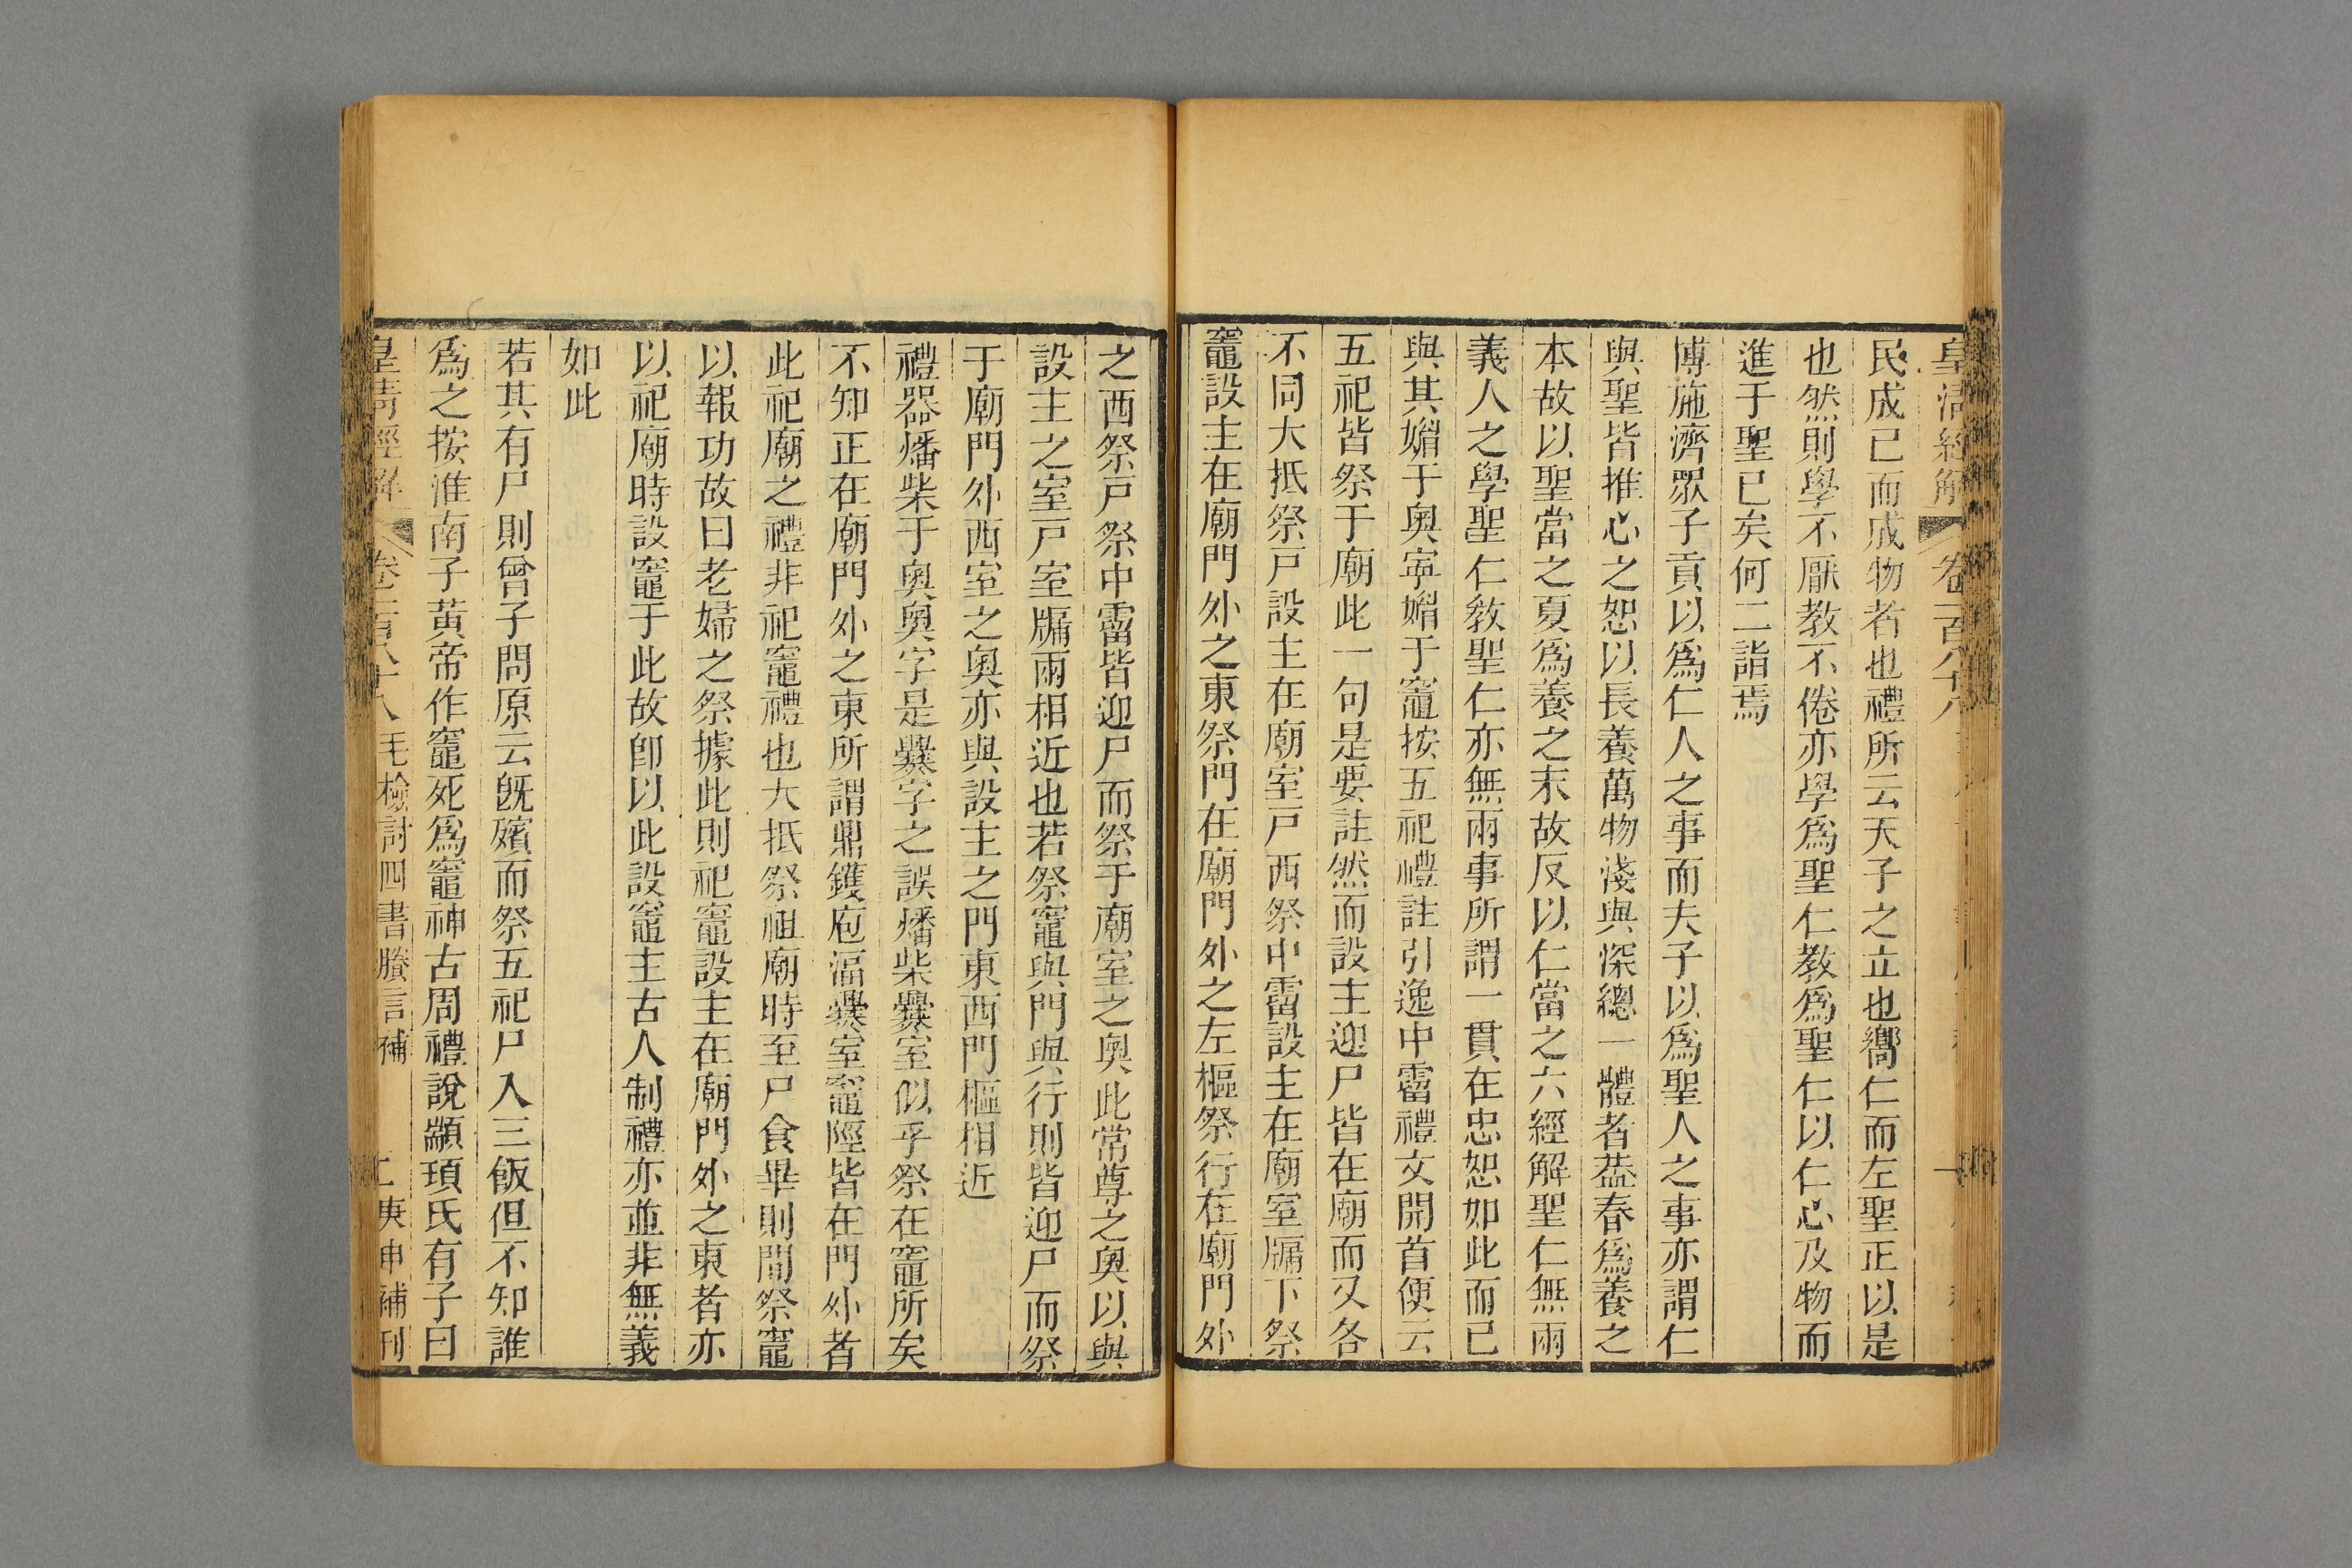 皇清經解 卷一百八十八
民成已而成物者也禮所云天子之立也嚮仁而左聖正以是
也然則學不厭教不倦亦學爲聖仁教爲聖仁以仁心及物而
進于聖已矣何二詣焉
博施濟眾子貢以爲仁人之事而夫子以爲聖人之事亦謂仁
與聖皆推心之恕以長養萬物淺與深總一體者葢春爲養之
本故以聖當之夏爲養之末故反以仁當之六經解聖仁無兩
義人之學聖仁教聖仁亦無兩事所謂一貫在忠恕如此而已
與其媚于奧寧媚于竈按五祀禮註引逸中霤禮文開首便云
五祀皆祭于廟此一句是要註然而設主迎尸皆在廟而又各
不同大抵祭戸設主在廟室戸西祭中霤設主在廟室牖下祭
竈設主在廟門外之東祭門在廟門外之左樞祭行在廟門外
之西祭戸祭中霤皆迎尸而祭于廟室之奧此常尊之奧以與
設主之室戸室牖兩相近也若祭竈與門與行則皆迎尸而祭
于廟門外西室之奧亦與設主之門東西門樞相近
禮器燔柴于奧奧字是爨字之誤燔柴爨室似乎祭在竈所矣
不知正在廟門外之東所謂鼎鑊庖湢爨室竈陘皆在門外者
此祀廟之禮非祀竈禮也大抵祭祖廟時至尸食畢則間祭竈
以報功故曰老婦之祭據此則祀竈設主在廟門外之東者亦
以祀廟時設竈于此故卽以此設竈主古人制禮亦並非無義
如此
若其有尸則曾子問原云旣殯而祭五祀尸入三飯但不知誰
爲之按淮南子黃帝作竈死爲竈神古周禮說顓頊氏有子曰
皇清經解 卷一百八十八 毛檢討四書賸言補 二 庚申補刊